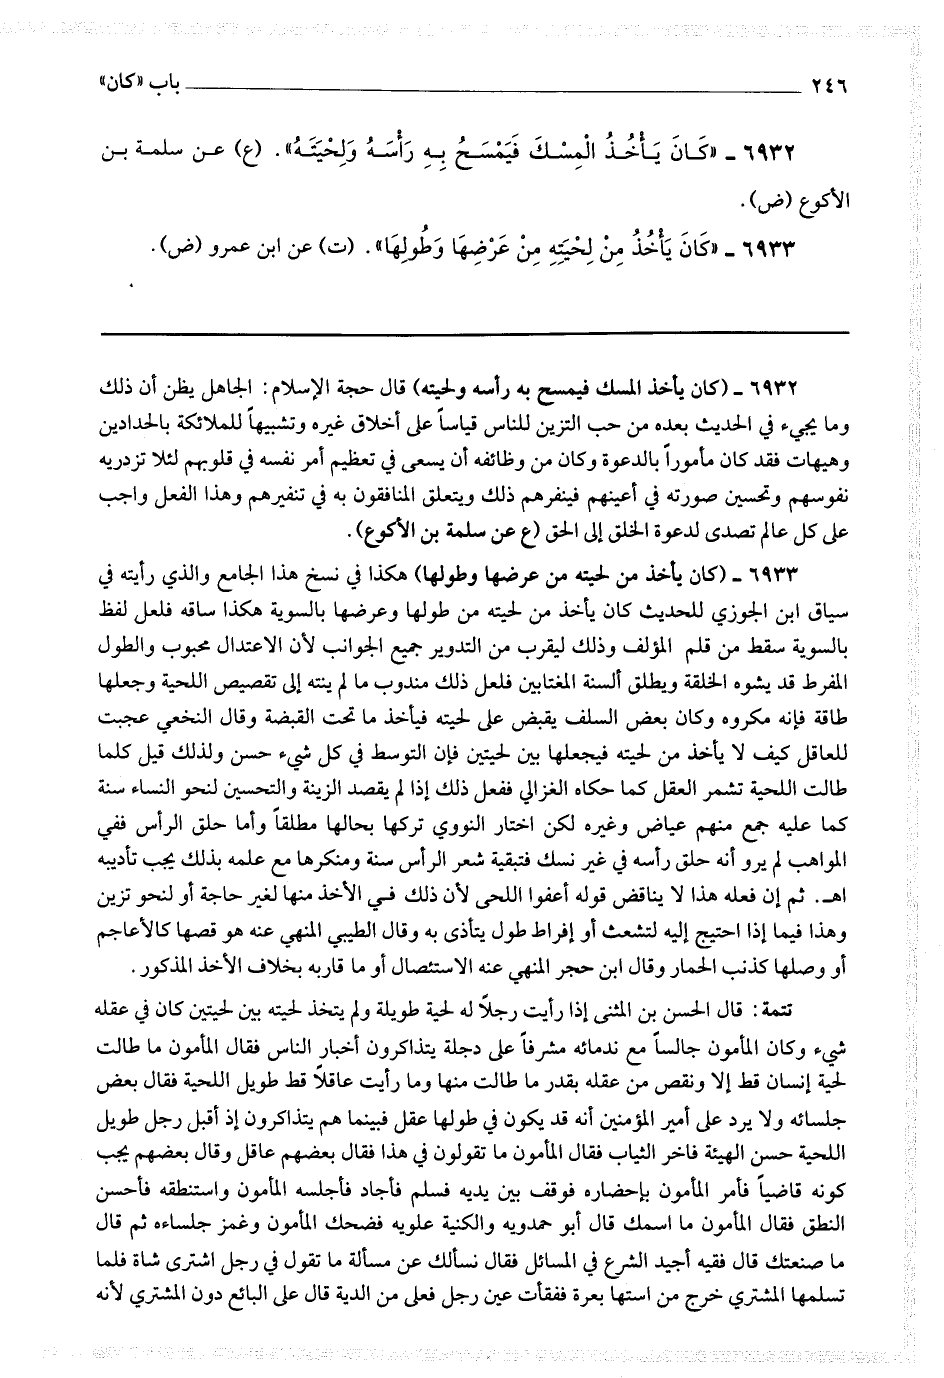 ٢٤٦ باب «كان»
٦٩٣٢ ـ «كَانَ يَأْخُذُ الْمِسْكَ فَيَمْسَحُ بِهِ رَأْسَهُ وَلِحْيَتَهُ». (ع) عن سلمة بن
الأكوع (ض).
٦٩٣٣ ـ «كَانَ يَأْخُذُ مِنْ لِحْيَتِهِ مِنْ عَرْضِهَا وَطُولِهَا». (ت) عن ابن عمرو (ض).
٦٩٣٢ ـ (كان يأخذ المسك فيمسح به رأسه ولحيته) قال حجة الإسلام: الجاهل يظن أن ذلك
وما يجيء في الحديث بعده من حب التزين للناس قياساً على أخلاق غيره وتشبيهاً للملائكة بالحدادين
وهيهات فقد كان مأموراً بالدعوة وكان من وظائفه أن يسعى في تعظيم أمر نفسه في قلوبهم لئلا تزدريه
نفوسهم وتحسين صورته في أعينهم فينفرهم ذلك ويتعلق المنافقون به في تنفيرهم وهذا الفعل واجب
على كل عالم تصدى لدعوة الخلق إلى الحق (ع عن سلمة بن الأكوع).
٦٩٣٣ ـ (كان يأخذ من لحيته من عرضها وطولها) هكذا في نسخ هذا الجامع والذي رأيته في
سياق ابن الجوزي للحديث كان يأخذ من لحيته من طولها وعرضها بالسوية هكذا ساقه فلعل لفظ
بالسوية سقط من قلم المؤلف وذلك ليقرب من التدوير جميع الجوانب لأن الاعتدال محبوب والطول
المفرط قد يشوه الخلقة ويطلق ألسنة المغتابين فلعل ذلك مندوب ما لم ينته إلى تقصيص اللحية وجعلها
طاقة فإنه مكروه وكان بعض السلف يقبض على لحيته فيأخذ ما تحت القبضة وقال النخعي عجبت
للعاقل كيف لا يأخذ من لحيته فيجعلها بين لحيتين فإن التوسط في كل شيء حسن ولذلك قيل كلما
طالت اللحية تشمر العقل كما حكاه الغزالي ففعل ذلك إذا لم يقصد الزينة والتحسين لنحو النساء سنة
كما عليه جمع منهم عياض وغيره لكن اختار النووي تركها بحالها مطلقاً وأما حلق الرأس ففي
المواهب لم يرو أنه حلق رأسه في غير نسك فتبقية شعر الرأس سنة ومنكرها مع علمه بذلك يجب تأديبه
اهـ. ثم إن فعله هذا لا يناقض قوله أعفوا اللحى لأن ذلك في الأخذ منها لغير حاجة أو لنحو تزين
وهذا فيما إذا احتيج إليه لتشعث أو إفراط طول يتأذى به وقال الطيبي المنهي عنه هو قصها كالأعاجم
أو وصلها كذنب الحمار وقال ابن حجر المنهي عنه الاستئصال أو ما قاربه بخلاف الأخذ المذكور.
تتمة: قال الحسن بن المثنى إذا رأيت رجلاً له لحية طويلة ولم يتخذ لحيته بين لحيتين كان في عقله
شيء وكان المأمون جالساً مع ندمائه مشرفاً على دجلة يتذاكرون أخبار الناس فقال المأمون ما طالت
لحية إنسان قط إلا ونقص من عقله بقدر ما طالت منها وما رأيت عاقلاً قط طويل اللحية فقال بعض
جلسائه ولا يرد على أمير المؤمنين أنه قد يكون في طولها عقل فبينما هم يتذاكرون إذ أقبل رجل طويل
اللحية حسن الهيئة فاخر الثياب فقال المأمون ما تقولون في هذا فقال بعضهم عاقل وقال بعضهم يجب
كونه قاضياً فأمر المأمون بإحضاره فوقف بين يديه فسلم فأجاد فأجلسه المأمون واستنطقه فأحسن
النطق فقال المأمون ما اسمك قال أبو حمدويه والكنية علويه فضحك المأمون وغمز جلساءه ثم قال
ما صنعتك قال فقيه أجيد الشرع في المسائل فقال نسألك عن مسألة ما تقول في رجل اشترى شاة فلما
تسلمها المشتري خرج من استها بعرة ففقأت عين رجل فعلى من الدية قال على البائع دون المشتري لأنه